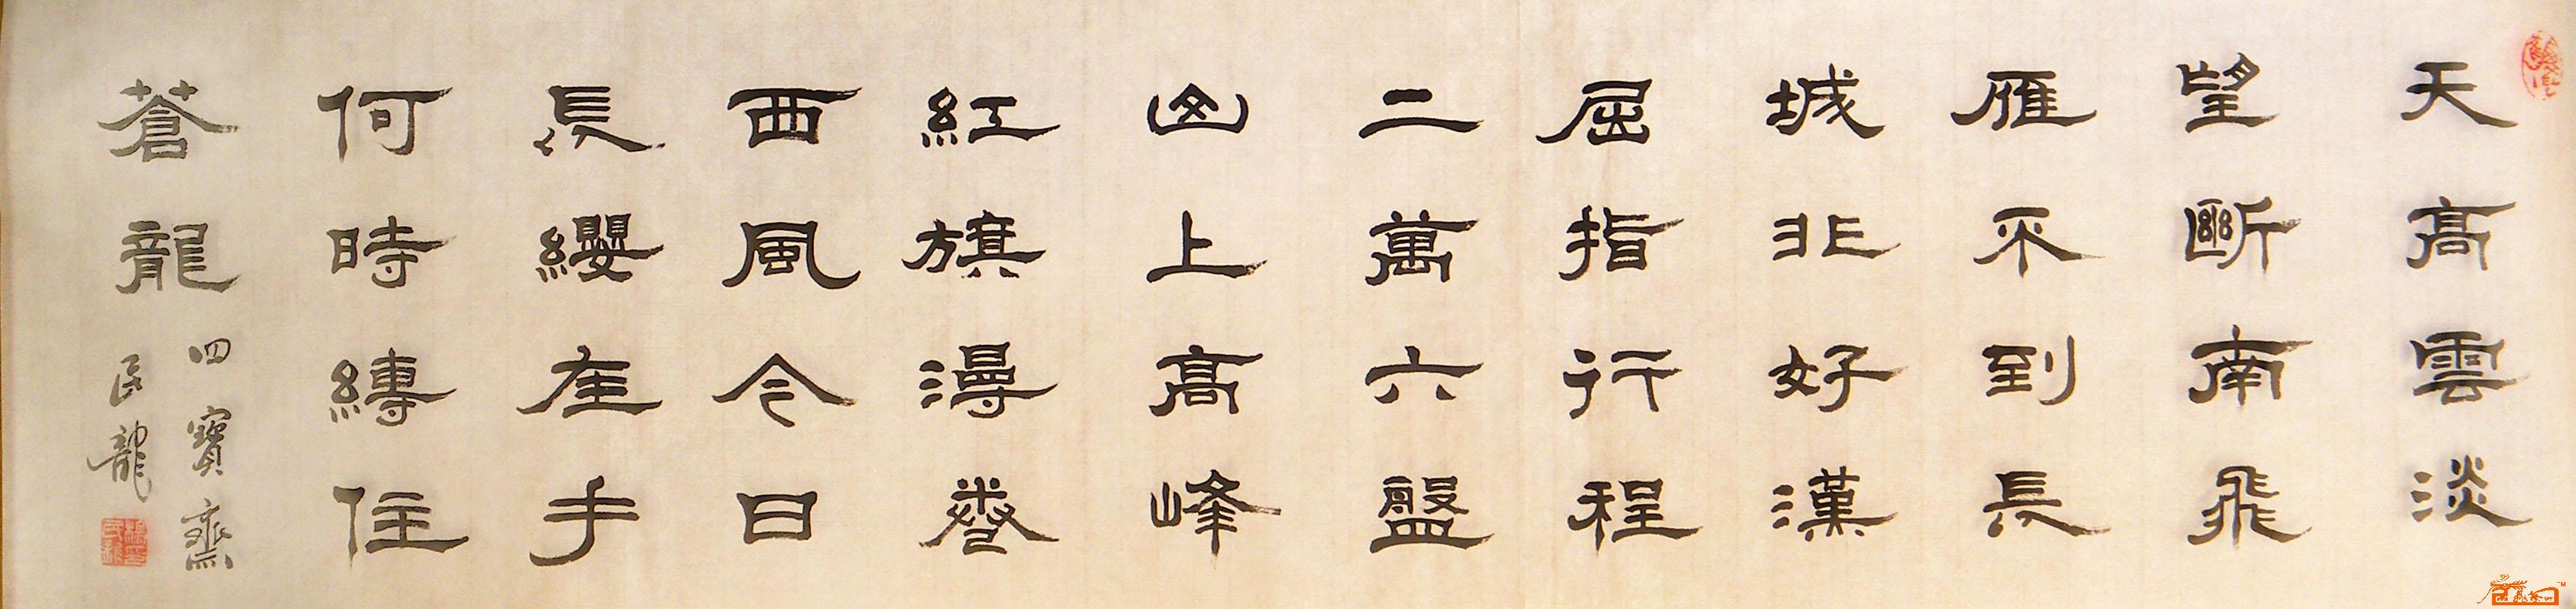 天高雲淡
望斷南飛
雁不到長
城非好漢
屈指行程
二萬六盤
山上高峰
紅旗漫卷
西風今日
長纓在手
何時縛住
蒼龍
四寶齋
民龍